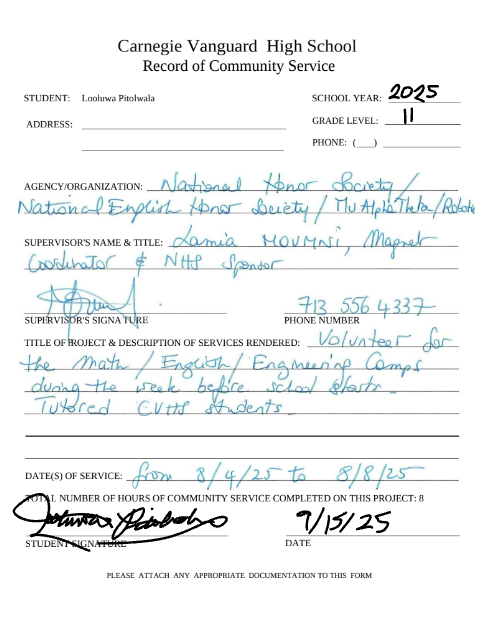 Carnegie Vanguard High School
Record of Community Service
STUDENT: Looluwa Pitolwala
SCHOOL YEAR: 2025
ADDRESS:
GRADE LEVEL: 11
PHONE: (___)
AGENCY/ORGANIZATION: National Honor Society /
National English Honor Society / Mu Alpha Theta / Robotics
SUPERVISOR'S NAME & TITLE: Lamia MOUMNI, Magnet
Coordinator & NHS Sponsor
713 556 4337
SUPERVISOR'S SIGNATURE PHONE NUMBER
TITLE OF PROJECT & DESCRIPTION OF SERVICES RENDERED: Volunteer for
the Math / English / Engineering Camps
during the week before school starts.
Tutored CVHS students.
DATE(S) OF SERVICE: from 8/4/25 to 8/8/25
TOTAL NUMBER OF HOURS OF COMMUNITY SERVICE COMPLETED ON THIS PROJECT: 8
9/15/25
STUDENT SIGNATURE DATE
PLEASE ATTACH ANY APPROPRIATE DOCUMENTATION TO THIS FORM